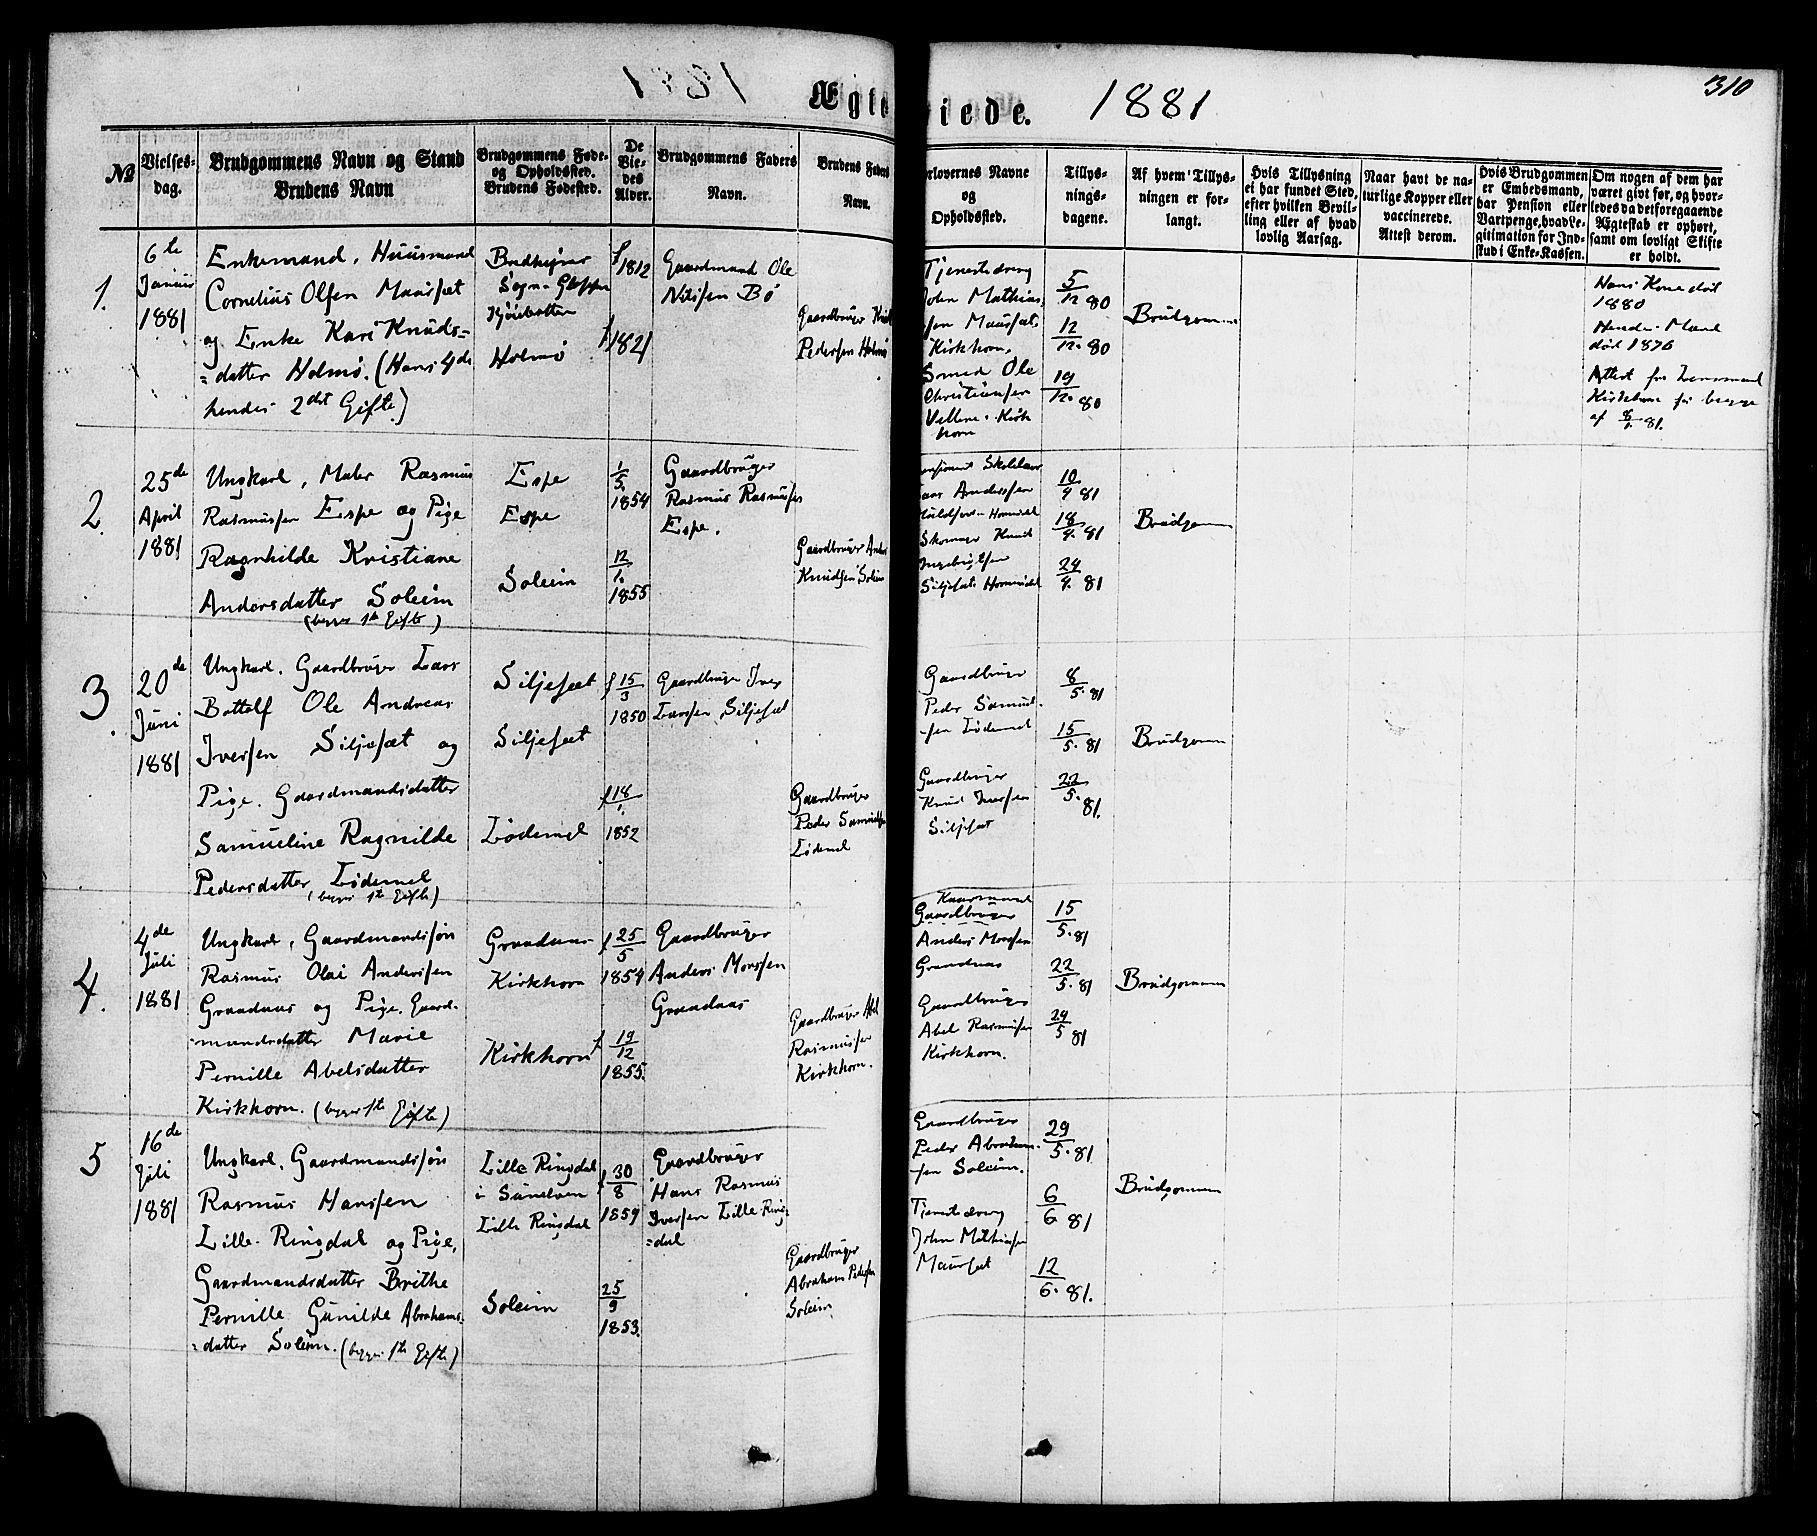 310
Ægte viede. 1881
No
Vielses-
dag.
Brudgommens Navn og Stand
Brudens Navn
Brudgommens Føde-
og Opholdssted.
Brudens Fødested.
De
Vie-
des
Alder.
Brudgommens Faders
Navn.
Brudens Faders
Navn.
orlovernes Navne
og
Opholdssted.
Tillys-
nings-
dagene.
Af hvem Tillys-
ningen er for-
langt.
Hvis Tillysning
ei har fundet Sted,
efter hvilken Bevil-
ling eller af hvad
lovlig Aarsag.
Naar havt de na-
turlige Kopper eller
vaccinerede.
Attest derom.
Hvis Brudgommen
er Embedsmand,
har Pension eller
Vartpenge, hvad Le-
gitimation for Ind-
skud i Enke-Kassen.
Om nogen af dem har
været givt før, og hvor-
ledes da det foregaaende
Ægteskab er ophørt,
samt om lovligt Skifte
er holdt.
1.
6te
Januar
1881
Enkemand, Huusmand
Cornelius Olsen Maurset
og Enke Kari Knuds=
=datter Holmø. (Hans 4de
hendes 2det Gifte)
Sogn Gloppen
Holmø
1812
1821
Gaardmand Ole
Nilssen Bø
Gaardbruger Knud
Pedersen Holmø
Tjenestedreng
John Mathias-
sen Maurset,
Kirkhorn,
Smed Ole
Christiansen
Kirk
horn
5/12 80
12/12. 80
19/12. 80
Brudgommen
Hans Kone död
1880
Hendes Mand
död 1876
Attest fra Lensmand
Kirkhorn for begge
af 8/1. 81.
2.
25de
April
1881
Ungkarl, Maler Rasmus
Rasmussen Espe og Pige
Ragnhilde Kristiane
Andersdatter Soleim
(begges 1te Gifte)
Espe
Espe
Soleim
1/5.
1854
12/1.
1855
Gaardbruger
Rasmus Rasmussen
Espe.
Gaardbruger Anders
Knudsen Soleim
Skolelærer
Lars Anderssen
Hornindal
Skomager Knud
Ingebrigtsen
Siljeset. Hornindal
10/4 81
18/4. 81
24/4. 81
Brudgommen
3.
20de
Juni
1881
Ungkarl. Gaardbruger Lars
Bottolf Ole Andreas
Iversen Siljeset og
Pige. Gaardmandsdatter
Samueline Ragnilde
Pedersdatter Lødemel
(begges 1te Gifte)
Siljeset
Siljeset
Lødemel
f 15/3
1850
f 18/1.
1852
Gaardbruger Iver
Larssen Siljeset
Gaardbruger
Peder Samuelsen
Lødemel
Gaardbruger
Peder Samuel-
sen Lødemel
Gaardbruger
Knud Iversen
Siljeset
8/5. 81
15/5. 81
22/5. 81.
Brudgommen
4.
4de
Juli
1881
Ungkarl, Gaardmandssøn
Rasmus Olai Anderssen
Graadaas og Pige. Gaard-
mandsdatter Marie
Pernille Abelsdatter
Kirkhorn. (begges 1te Gifte)
Graadaas
Kirkhorn
Kirkhorn
f 25/5
1854
f 19/12
1855.
Gaardbruger
Anders Monssen
Graadaas
Gaardbruger Abel
Rasmussen
Kirkhorn.
Kaarmand
Gaardbruger
Anders Monssen
Graadaas
Gaardbruger
Abel Rasmussen
Kirkhorn.
15/5. 81
22/5. 81
29/5 81
Brudgommen
5
16de
Juli
1881
Ungkarl, Gaardmandssøn
Rasmus Hanssen
Lille-Ringdal og Pige,
Gaardmandsdatter Brithe
Pernille Gunilde Abrahams-
=datter Soleim. (begges 1te Gifte)
Lille Ringdal
i Sunelven
Lille Ringdal
Soleim
f 30/8
1859
25/9
1853.
Gaardbruger
Hans Rasmus
Iversen Lille Ring
=dal
Gaardbruger
Abraham Pedersen
Soleim
Gaardbruger
Peder Abraham-
sen Soleim.
Tjenestedreng
John Mathiassen
Maurset
29/5. 81
6/6 81
12/6. 81.
Brudgommen